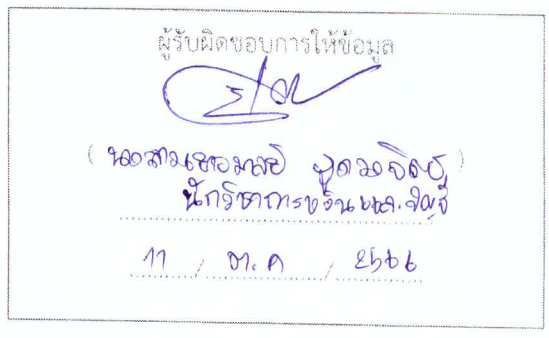 ผู้รับผิดชอบการให้ข้อมูล
( นางสาวเยาวมาลย์ )
นักวิชาการเงินและบัญชี
11 / ต.ค / 2566